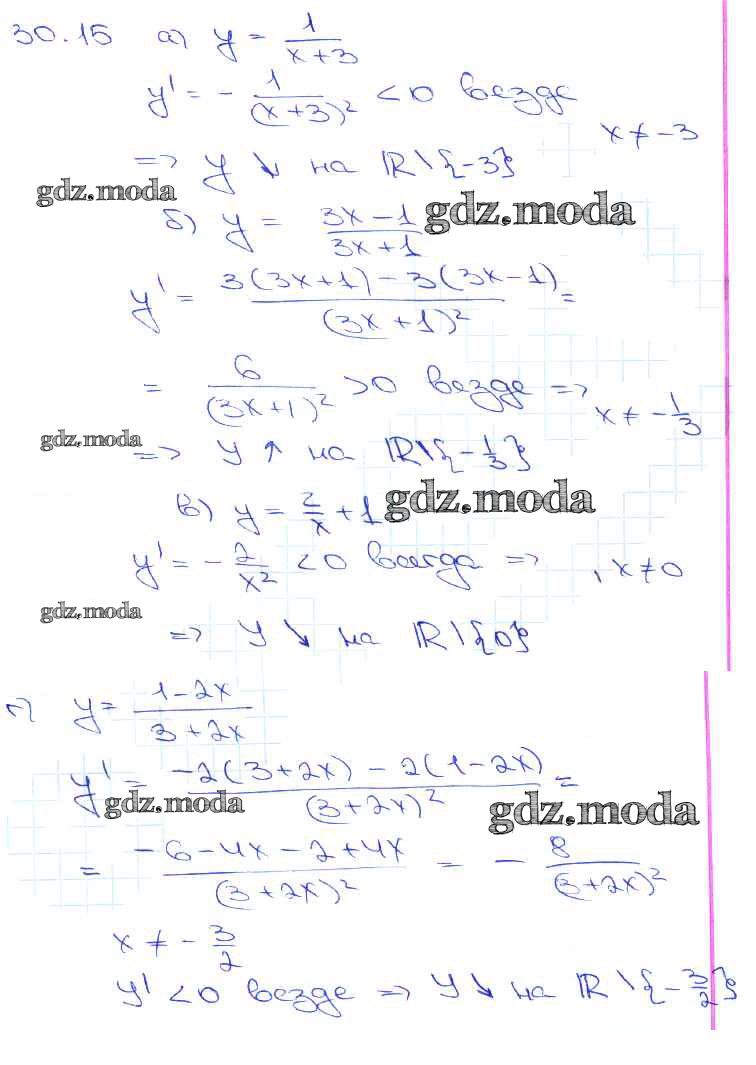 30.15 а) y = 1/(x+3)
y' = - 1/(x+3)² < 0 везде
x ≠ -3
=> y ↘ на ℝ\{-3}
gdz.moda
б) y = (3x-1)/(3x+1) gdz.moda
y' = (3(3x+1) - 3(3x-1))/(3x+1)² =
= 6/(3x+1)² > 0 везде =>
x ≠ -1/3
gdz.moda
=> y ↑ на ℝ\{-1/3}
в) y = 2/x + 1 gdz.moda
y' = - 2/x² < 0 всегда => , x ≠ 0
gdz.moda
=> y ↘ на ℝ\{0}
г) y = (1-2x)/(3+2x)
y' = (-2(3+2x) - 2(1-2x))/(3+2x)² =
gdz.moda gdz.moda
= (-6-4x-2+4x)/(3+2x)² = - 8/(3+2x)²
x ≠ - 3/2
y' < 0 везде => y ↘ на ℝ\{-3/2}